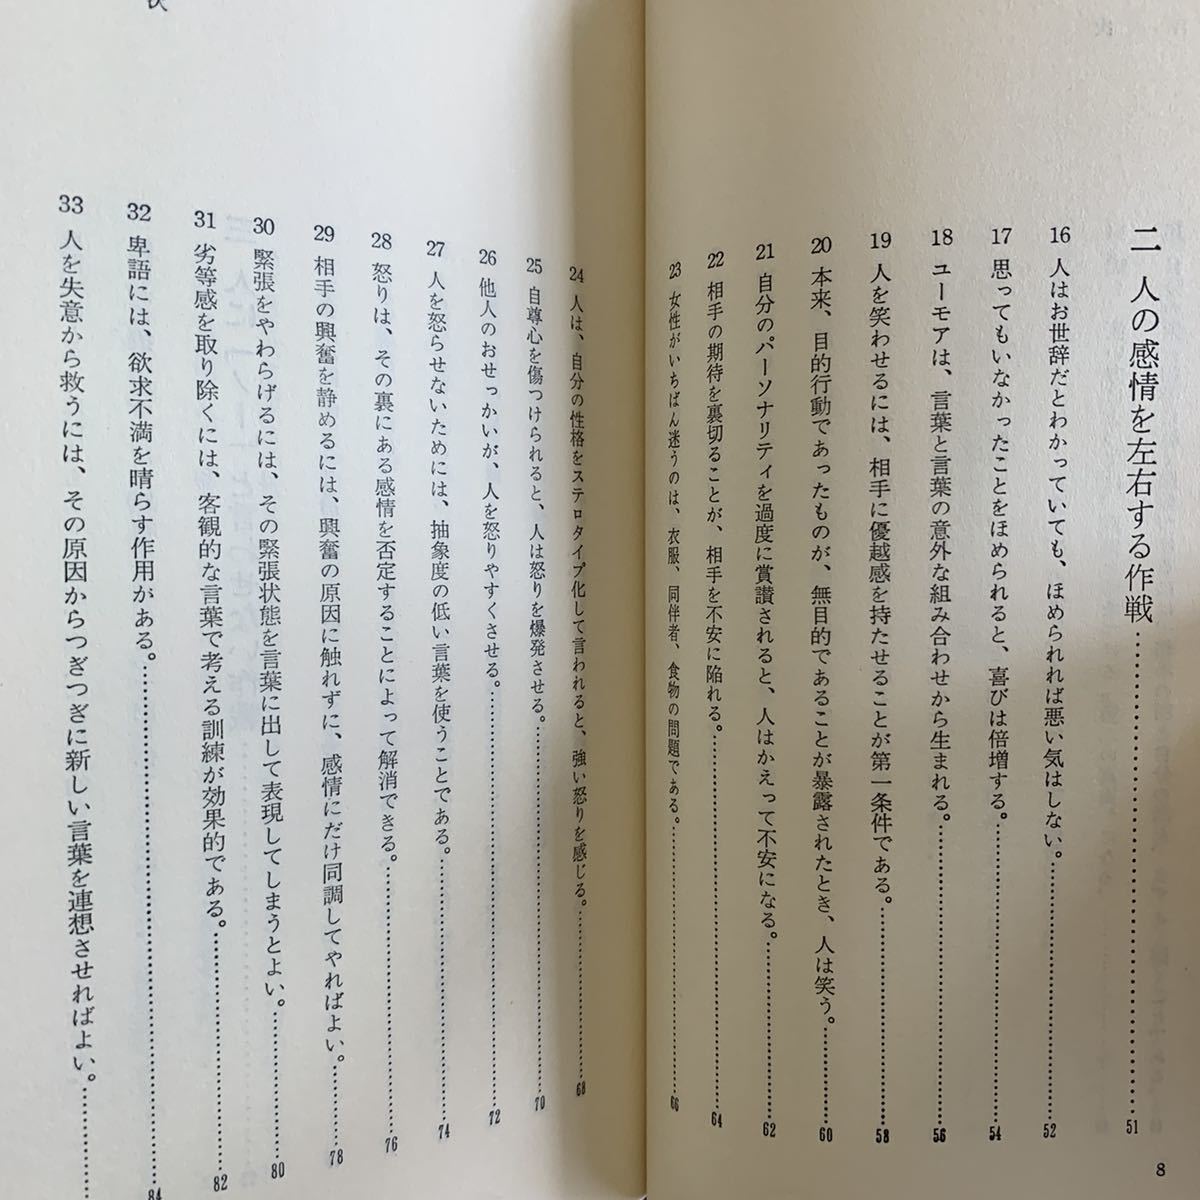 二　人の感情を左右する作戦……………………51
16　人はお世辞だとわかっていても、ほめられれば悪い気はしない。……………………52
17　思ってもいなかったことをほめられると、喜びは倍増する。……………………54
18　ユーモアは、言葉と言葉の意外な組み合わせから生まれる。……………………56
19　人を笑わせるには、相手に優越感を持たせることが第一条件である。……………………58
20　本来、目的行動であったものが、無目的であることが暴露されたとき、人は笑う。……………………60
21　自分のパーソナリティを過度に賞讃されると、人はかえって不安になる。……………………62
22　相手の期待を裏切ることが、相手を不安に陥れる。……………………64
23　女性がいちばん迷うのは、衣服、同伴者、食物の問題である。……………………66
8
24　人は、自分の性格をステロタイプ化して言われると、強い怒りを感じる。……………………68
25　自尊心を傷つけられると、人は怒りを爆発させる。……………………70
26　他人のおせっかいが、人を怒りやすくさせる。……………………72
27　人を怒らせないためには、抽象度の低い言葉を使うことである。……………………74
28　怒りは、その裏にある感情を否定することによって解消できる。……………………76
29　相手の興奮を静めるには、興奮の原因に触れずに、感情にだけ同調してやればよい。……………………78
30　緊張をやわらげるには、その緊張状態を言葉に出して表現してしまうとよい。……………………80
31　劣等感を取り除くには、客観的な言葉で考える訓練が効果的である。……………………82
32　卑語には、欲求不満を晴らす作用がある。……………………84
33　人を失意から救うには、その原因からつぎつぎに新しい言葉を連想させればよい。……………………